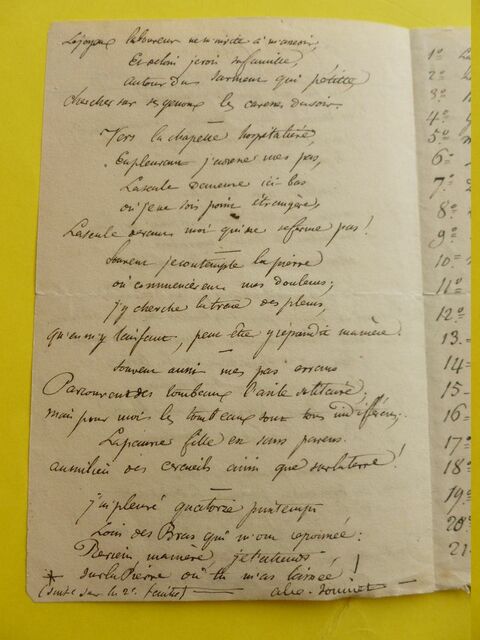 Lejoyeux laboureur ne m'invite à m'asseoir,
Et deloin je vois safamille,
autour Du sarment qui pétille,
chercher sur ses genoux les caresses dusoir.
Vers la chapelle hospitalière,
En pleurant j'adresse mes pas,
Laseule Demeure ici-bas
où jene sois point étrangère,
Laseule devant moi qui ne seferme pas !
Souvent jecontemple la pierre
où commencèrent mes douleurs;
j'y cherche latrace des pleurs,
qu'en m'y laissant, peut être y répandit mamère.
Souvent aussi mes pas errans
Parcourent des tombeaux l'asile solitaire,
mais pour moi les tombeaux sont tous indifférens.
Lapauvre fille est sans parens
aumilieu des cercueils ainsi que surlaterre !
j'ai pleuré quatorze printemps
Loin des Bras qui m'ont repoussée :
Reviens mamère, jet'attends
sur la Pierre où tu m'as laissée !
(Suite sur la 2e feuille) alex. soumet
1º
2º
3º
4º
5º
6º
7º
8º
9º
10º
11º
12º
13.
14
15
16
17º
18º
19º
20º
21